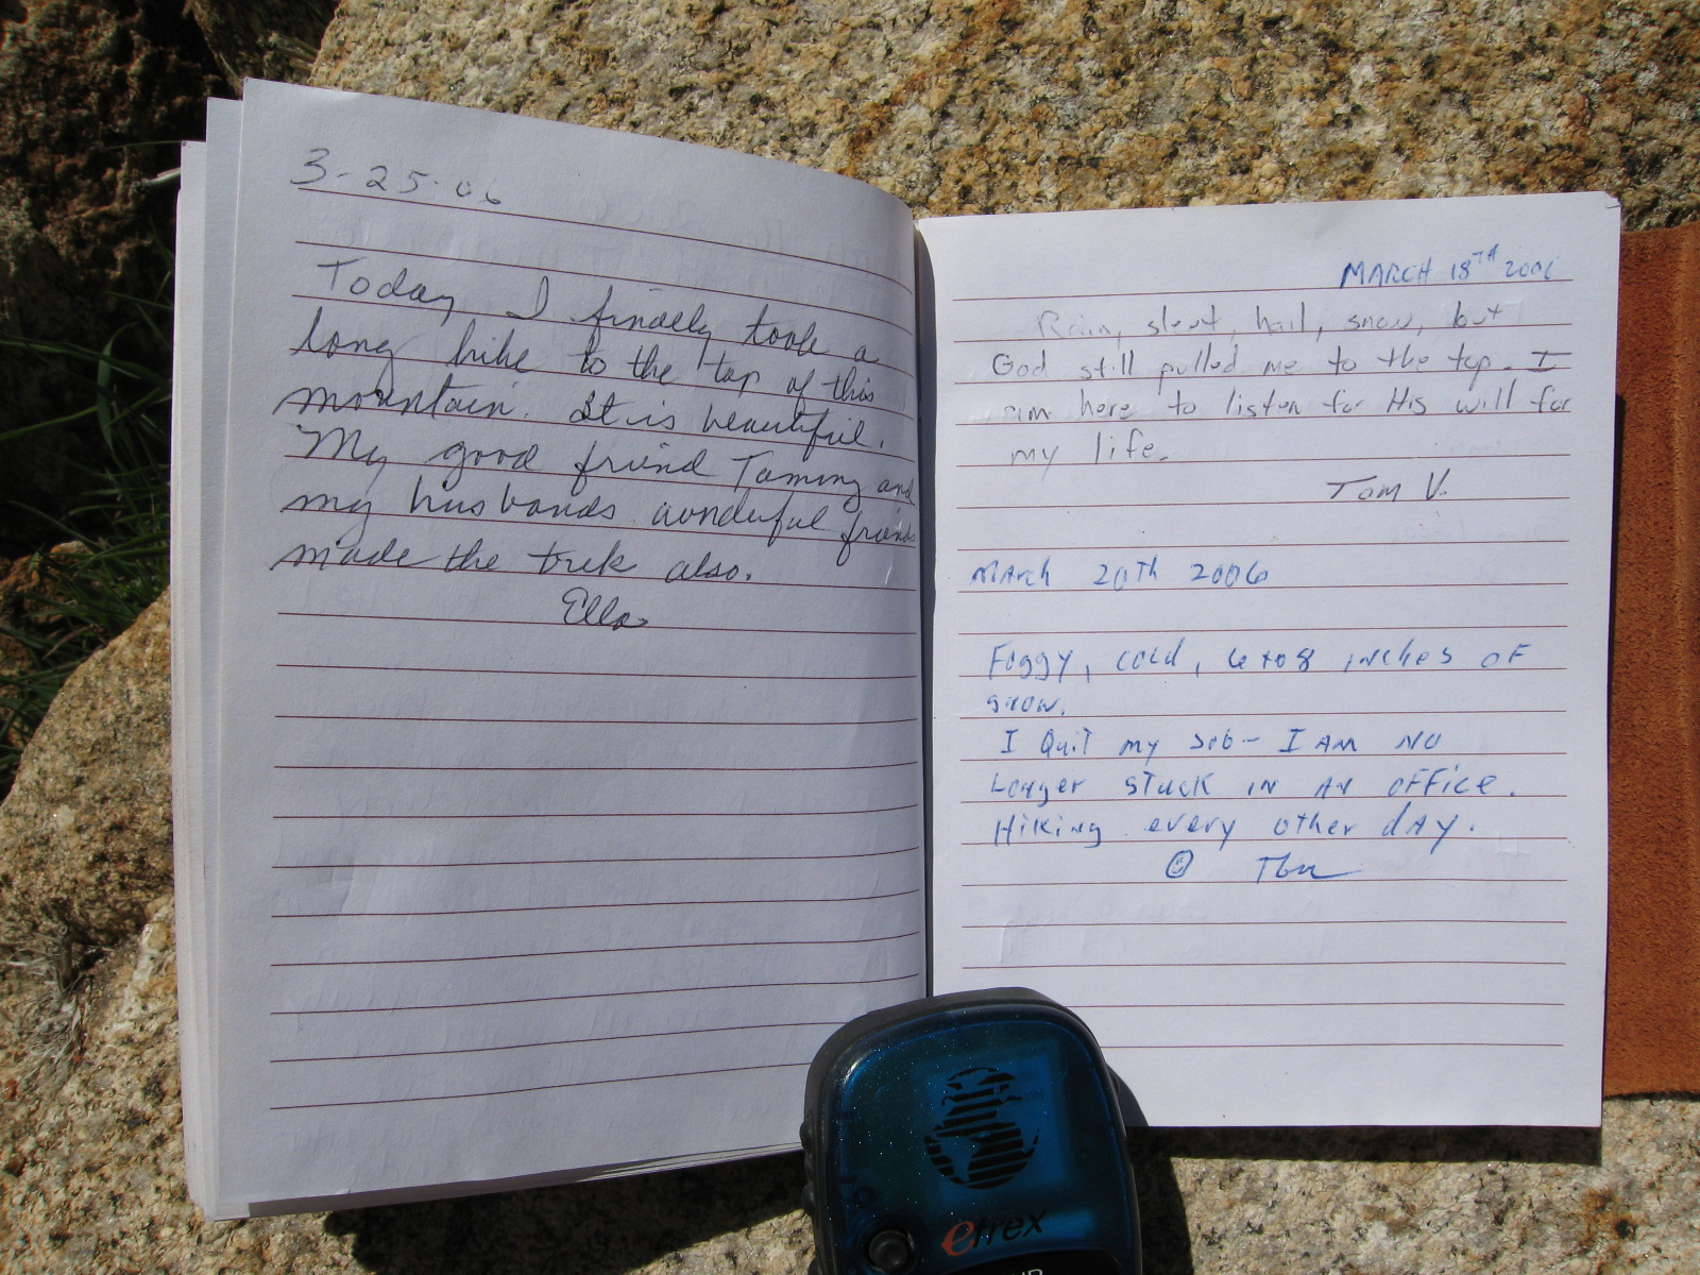 3-25-06
Today I finally took a
long hike to the top of this
mountain. It is beautiful.
My good friend Tammy and
my husbands wonderful friends
made the trek also.
Ella
MARCH 18TH 2006
Rain, sleet, hail, snow, but
God still pulled me to the top. I
am here to listen for His will for
my life.
Tom V.
March 20th 2006
Foggy, cold, 6 to 8 inches of
snow.
I Quit my Job - I AM NO
Longer stuck in an office.
Hiking every other day.
etrex